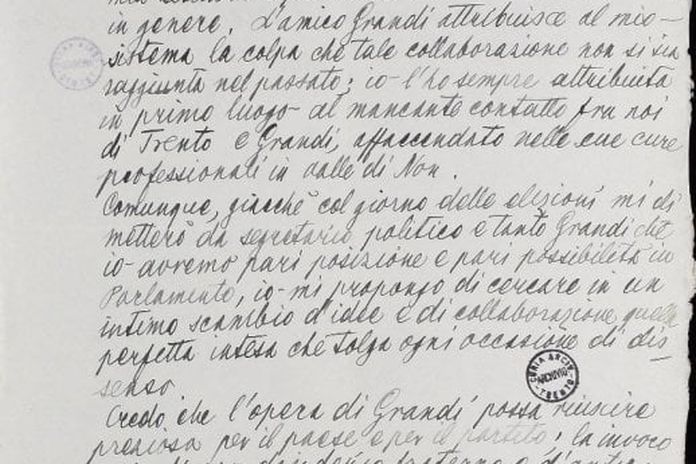 in genere. L'amico Grandi attribuisce al mio
sistema la colpa che tale collaborazione non si sia
raggiunta nel passato; io l'ho sempre attribuita
in primo luogo al mancante contatto fra noi
di Trento e Grandi, affaccendato nelle sue cure
professionali in valle di Non.
Comunque, giacchè col giorno delle elezioni mi di
metterò da segretario politico e tanto Grandi che
io avremo pari posizione e pari possibilità in
Parlamento, io mi propongo di cercare in un
intimo scambio d'idee e di collaborazione quella
perfetta intesa che tolga ogni occasione di dis-
senso.
CURIA ARCIV.
ARCHIVIO
TRENTO
Credo che l'opera di Grandi possa riuscire
preziosa per il paese e per il partito; la invoco